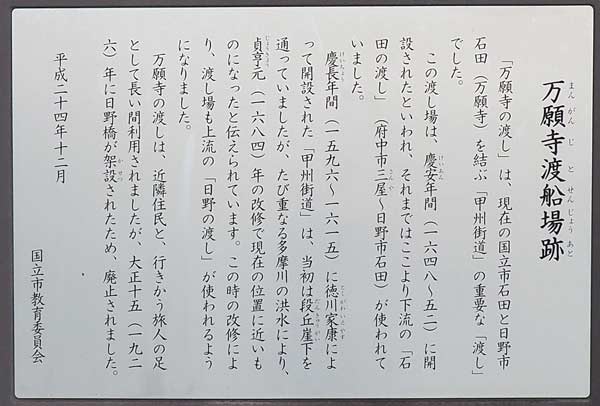 万願寺渡船場跡
まんがんじとせんじょうあと
「万願寺の渡し」は、現在の国立市石田と日野市
石田（万願寺）を結ぶ「甲州街道」の重要な「渡し」
でした。
この渡し場は、慶安年間（一六四八〜五二）に開
けいあん
設されたといわれ、それまではここより下流の「石
田の渡し」（府中市三屋〜日野市石田）が使われて
さんや
いました。
慶長年間（一五九六〜一六一五）に徳川家康によ
けいちょう
とくがわいえやす
って開設された「甲州街道」は、当初は段丘崖下を
だんきゅうがい
通っていましたが、たび重なる多摩川の洪水により、
貞享元（一六八四）年の改修で現在の位置に近いも
じょうきょう
のになったと伝えられています。この時の改修によ
り、渡し場も上流の「日野の渡し」が使われるよう
になりました。
万願寺の渡しは、近隣住民と、行きかう旅人の足
として長い間利用されましたが、大正十五（一九二
六）年に日野橋が架設されたため、廃止されました。
かせつ
平成二十四年十二月
国立市教育委員会